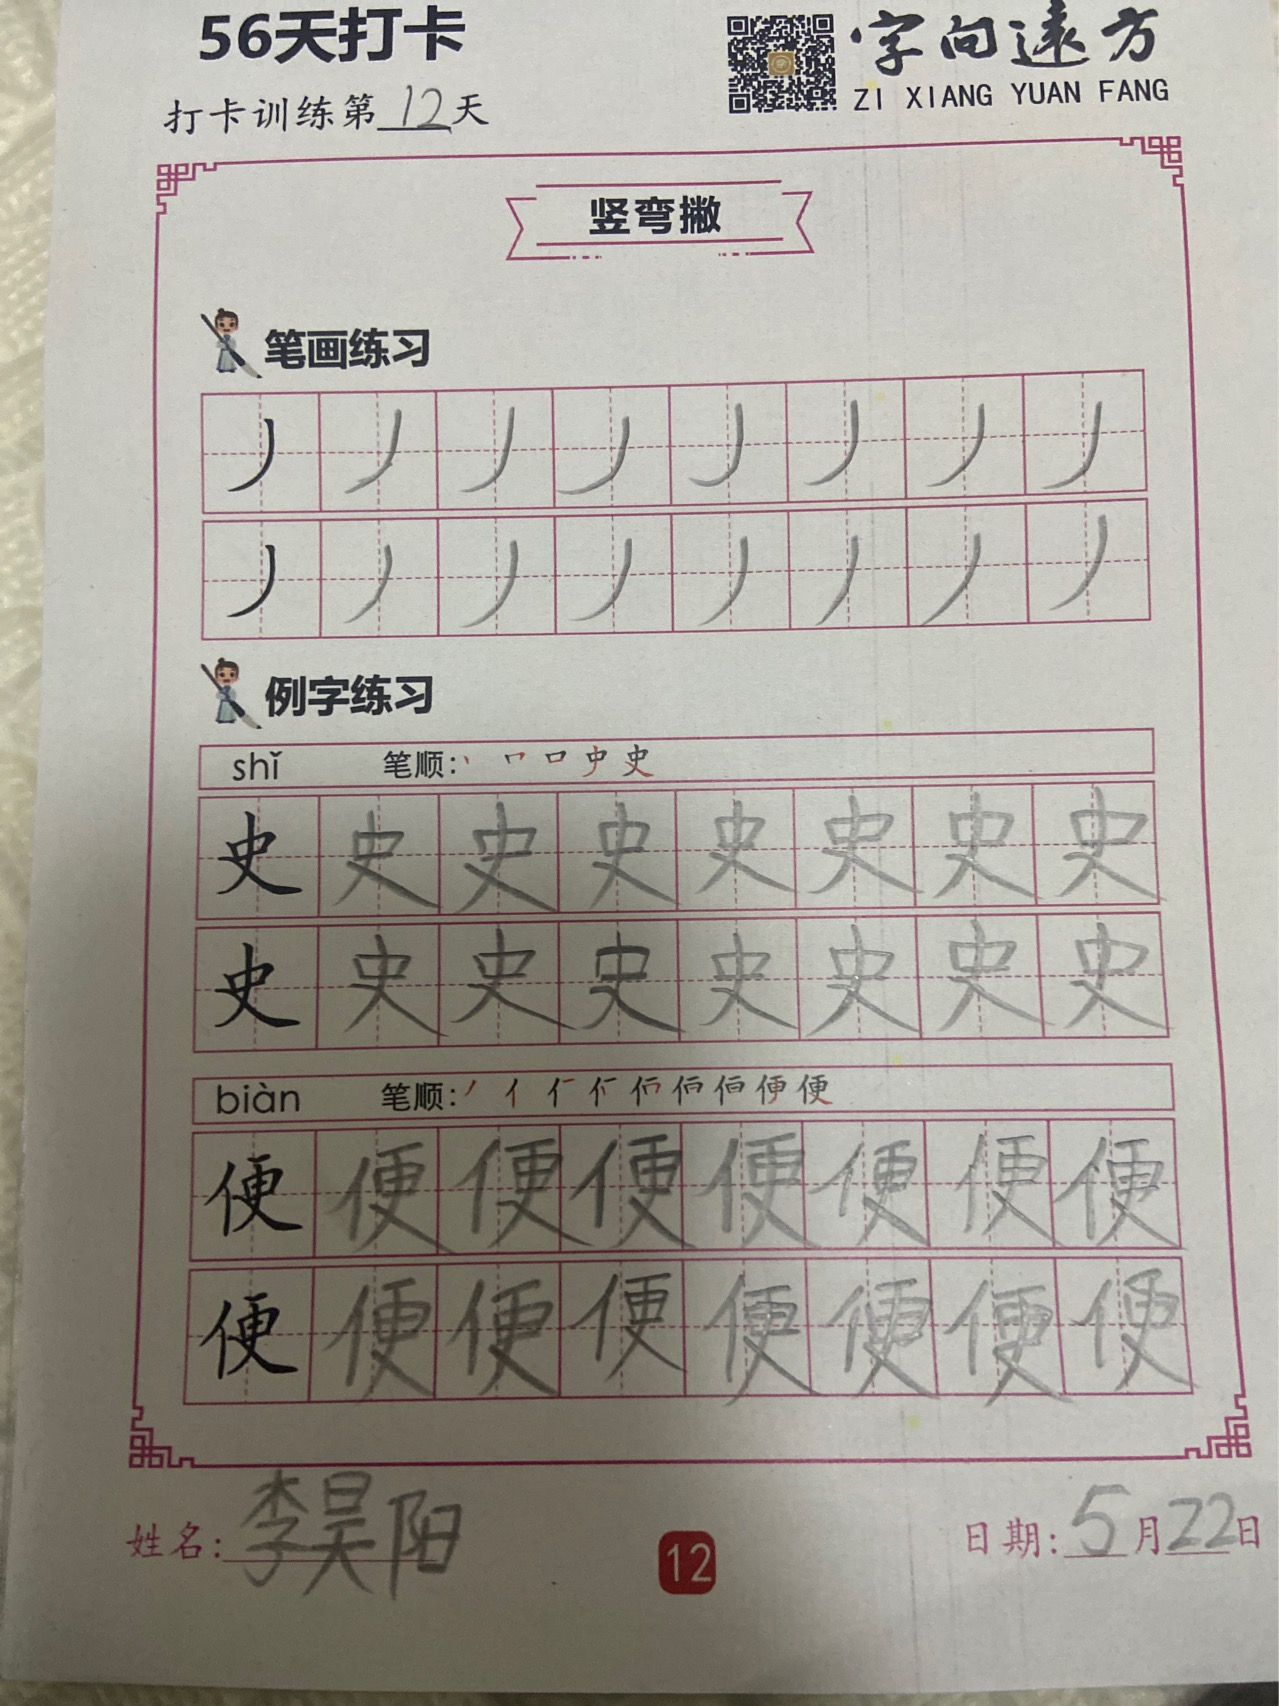 56天打卡
字向远方
ZI XIANG YUAN FANG
打卡训练第12天
竖弯撇
笔画练习
丿丿丿丿丿丿丿丿
丿丿丿丿丿丿丿丿
例字练习
shǐ 笔顺: 丨 ㇕ 口 史 史
史史史史史史史史
史史史史史史史史
biàn 笔顺:
便便便便便便便便
便便便便便便便便
姓名: 李昊阳
12
日期: 5月22日